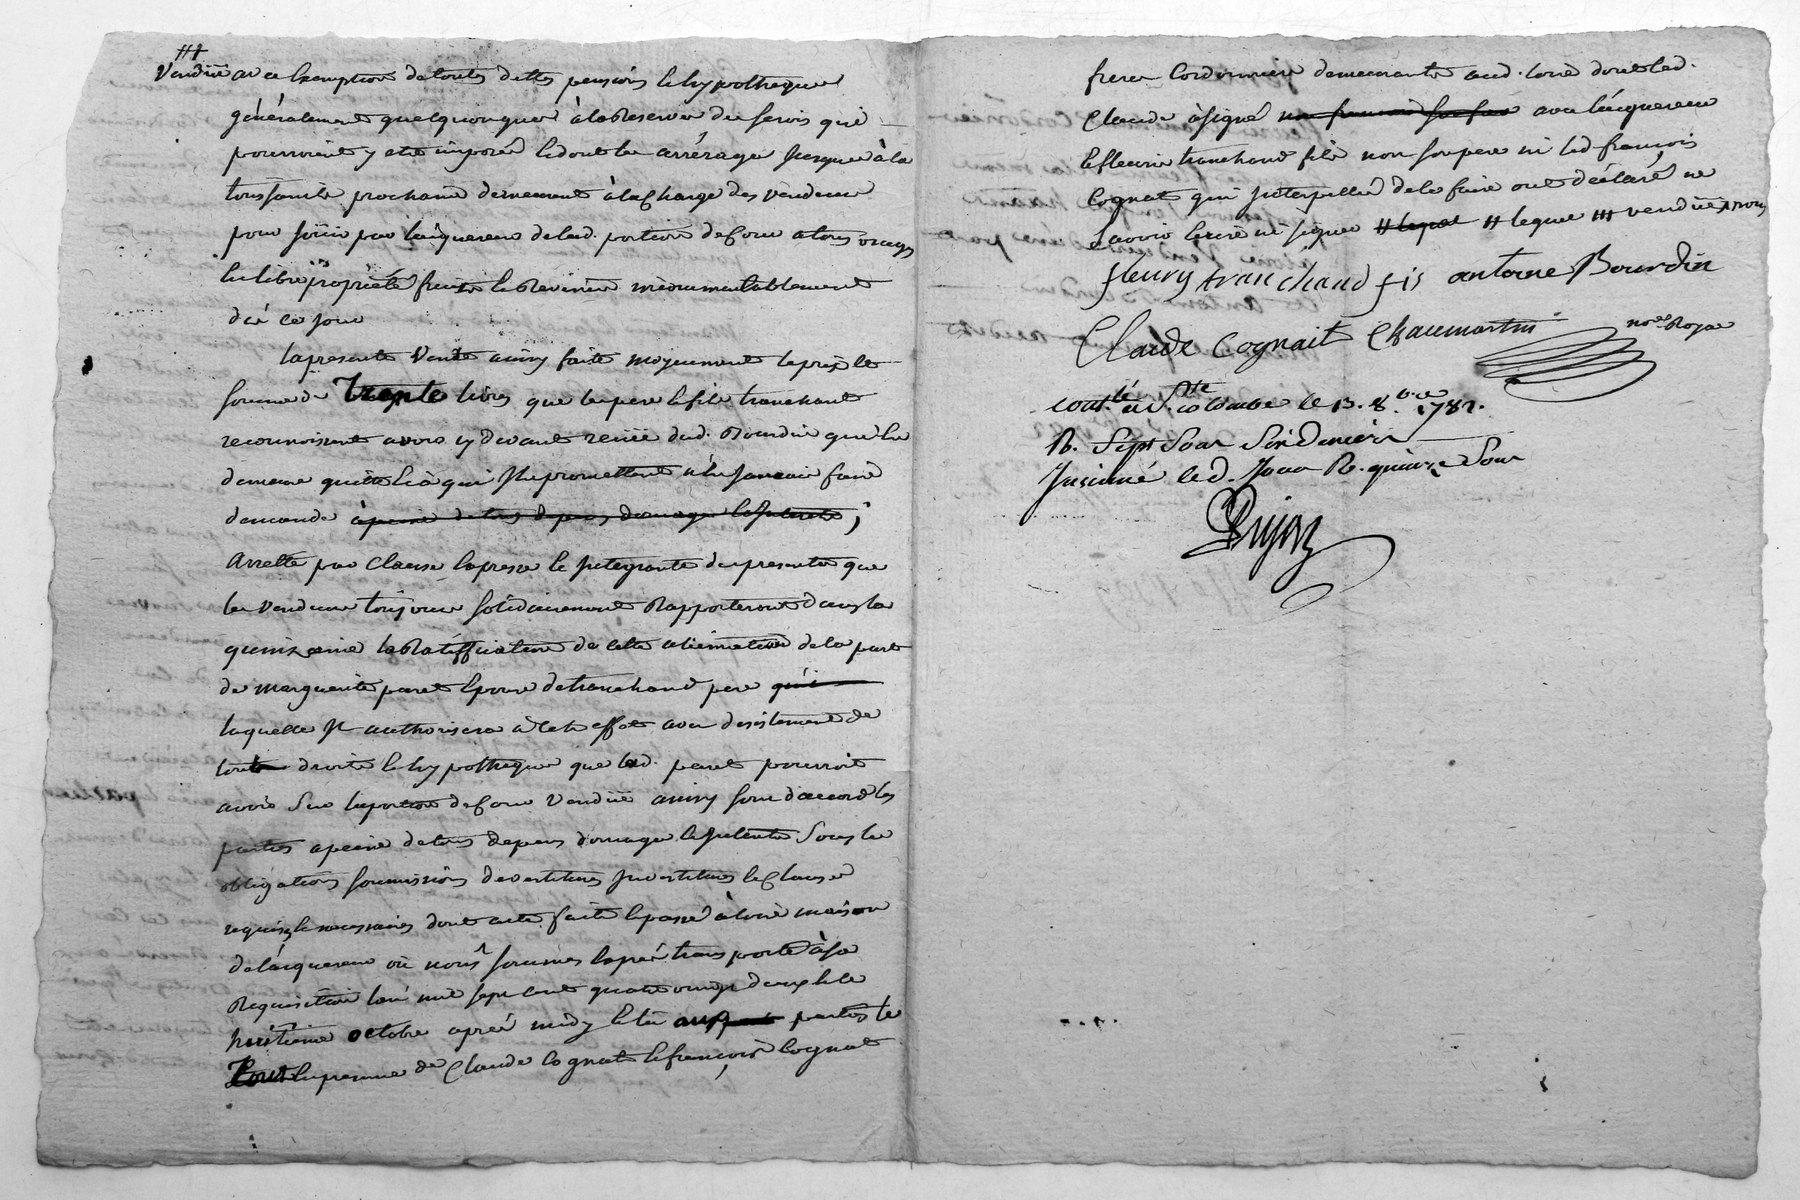 ###
Vendüe avec Exemption de toutes dettes pensions & hypotheques
généralement quelquonques à la Reserve des servis qui
pourroient y etre imposés & dont les arrérages jusques à la
toussaints prochaine demeurent à la Charge des vendeurs
pour joüir par l'acquereur de lad. portion de Cour a tous usages
en libre propriété fruits & Revenus incommutablement
dès ce jour
La presente Vente ainsy faite moyennant le prix &
somme de Trente livres que les pere & fils tranchant
reconnoissent avoir cy devant reçüe dud. Bourdin que les
demeure quitte & à qui Ils promettent n'en jamais faire
demande à peine de tous depens domages & Interets ;
Arretté par Clause Expresse & Integrante des presentes que
les Vendeurs toujours solidairement Rapporteront dans la
quinzaine la Ratiffication de cette alienation de la part
de marguerite paret Epouse de tranchand pere qui
laquelle Il authorisera à cet effet avec desistement de
tout droits & hypotheques que lad. paret pourroit
avoir sur la portion de Cour Vendüe ainsy sont d'accord les
parties a peine de tous depens domages & Interets sous les
obligations soumissions devestitures Investitures & Clauses
requises & necessaires dont acte fait & passé à Loire maison
de l'acquereur où nous sommes Exprès transporté à sa
Requisition l'an mil sept cent quatre vingt deux & le
huitieme octobre après midy & lû aux parties le
Tout En presence de Claude Cognat & françois Cognat
freres Cordonniers demeurants aud. Loire dont led.
Claude à signé non francois son frere avec l'acquereur
& fleurie tranchand fils non son pere ni led françois
Cognat qui Interpellés de le faire ont déclaré ne
savoir Ecrire ni signer # lequel # lequel ### vendüe
fleury tranchand fis antoine Bourdin
Claude Cognait Chaumartin
not.re Royal
Cont.lé à S.te Colombe le 13. 8.bre 1782.
R. Sept Sous Six Deniers
Insinué led. Jour R. quinze Sous
Dujast